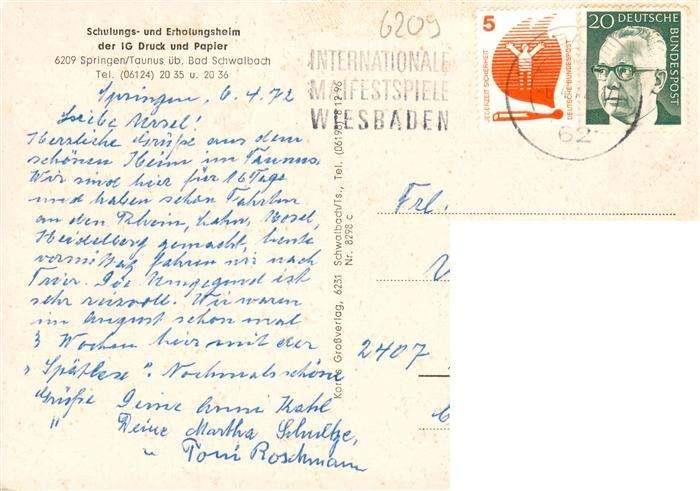 Schulungs- und Erholungsheim
der IG Druck und Papier
6209 Springen/Taunus üb. Bad Schwalbach
Tel. (06124) 20 35 u. 20 36
Springen, 6.4.72
Liebe Ursel!
Herzliche Grüße aus dem
schönen Heim im Taunus.
Wir sind hier für 16 Tage
und haben schon Fahrten
an den Rhein, Lahn, Mosel,
Heidelberg gemacht, heute
vormittag fahren wir nach
Trier. Die Umgegend ist
sehr reizvoll. Wir waren
im August schon mal
3 Wochen hier mit der
"Spätlese". Nochmals schöne
Grüße Deine Anni Kahl
" Deine Martha Schultze,
" Toni Roschmann
Karos Großverlag, 6231 Schwalbach/Ts., Tel. (06196) 8 12 96
Nr. 8298 c
6209
INTERNATIONALE
MAIFESTSPIELE
WIESBADEN
62
5
JEDERZEIT SICHERHEIT
DEUTSCHE BUNDESPOST
20 DEUTSCHE
BUNDESPOST
Frl.
2407